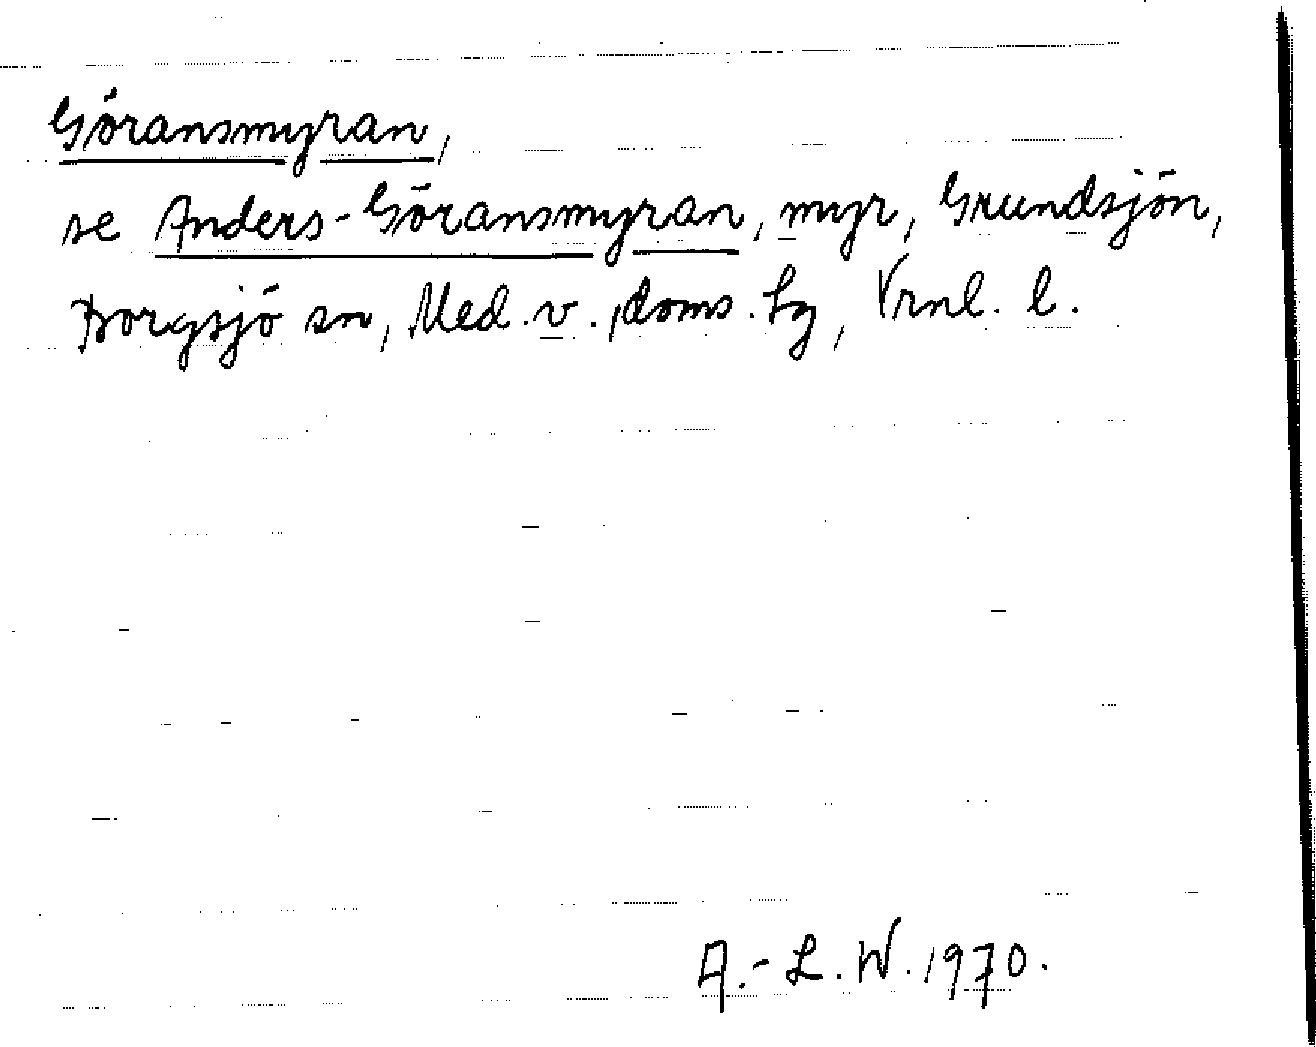 Göransmyran,
se Anders-Göransmyran, myr, Grundsjön,
Borgsjö sn, Med. v., doms. tg, Vrnl. l.
A.-L. W. 1970.